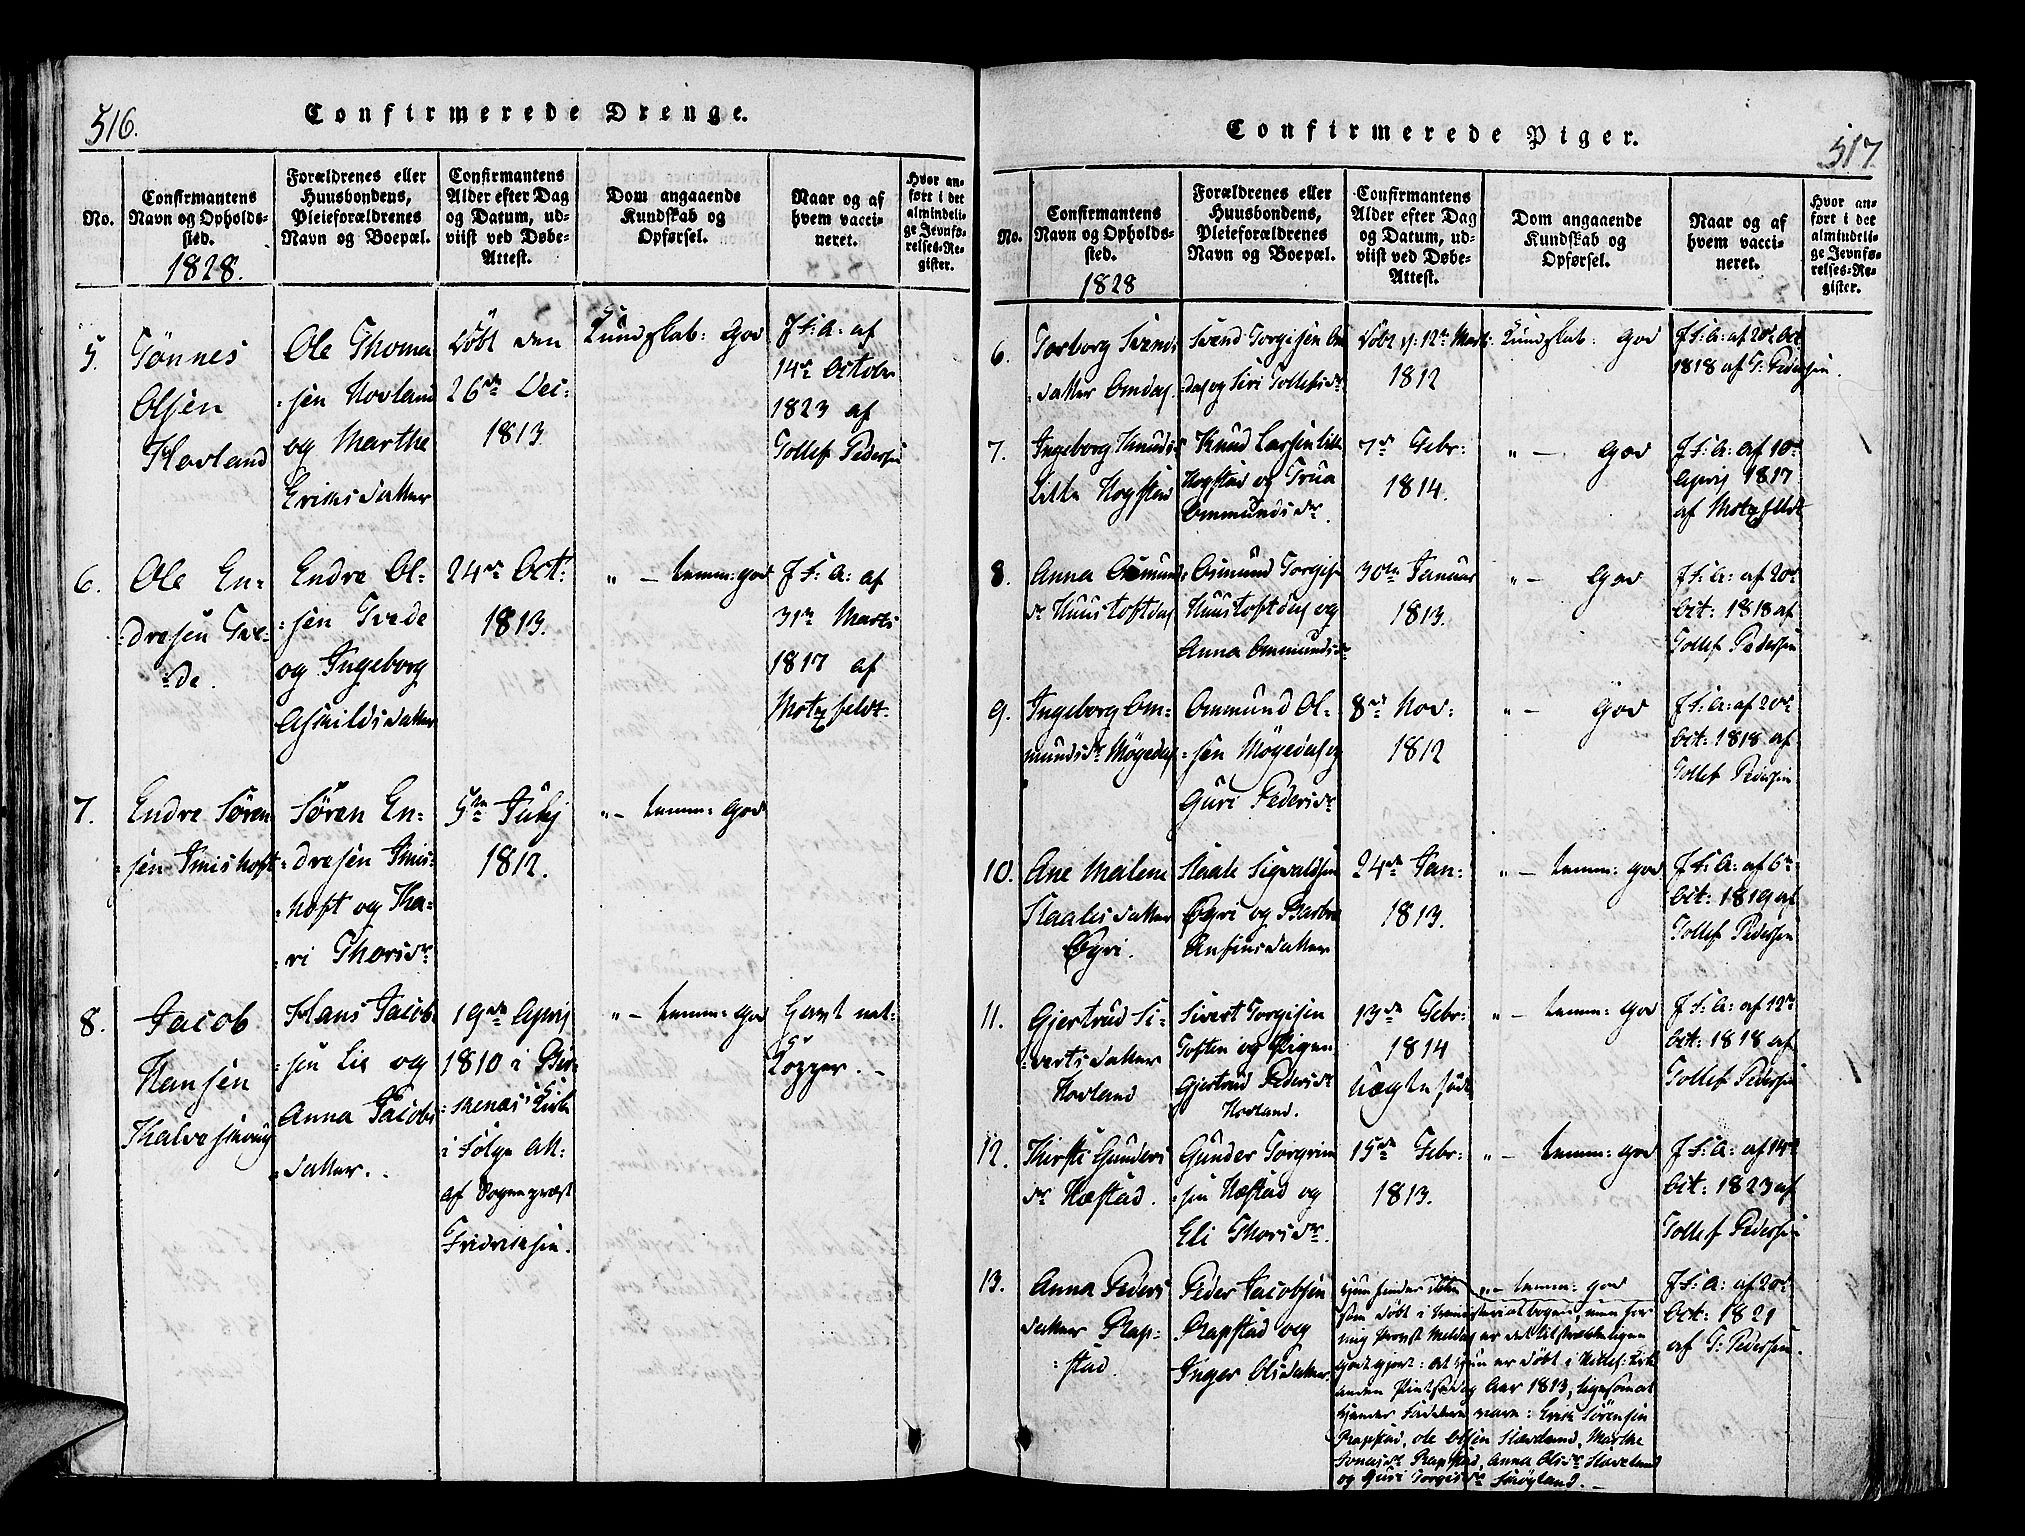 516.
Confirmerede Drenge.
No.
Confirmantens
Navn og Opholds-
sted.
1828.
Forældrenes eller
Huusbondens,
Pleieforældrenes
Navn og Boepæl.
Confirmantens
Alder efter Dag
og Datum, ud-
viist ved Døbe-
Attest.
Dom angaaende
Kundskab og
Opførsel.
Naar og af
hvem vacci-
neret.
Hvor an-
ført i det
almindeli-
ge Jevnfø-
relses-Re-
gister.
5.
Tönnes
Olsen
Hovland
Ole Thoma
:sen Hovland
og Marthe
Eriksdatter
döbt den
26de Dec:
1813
Kundskab: god
J F: A: af
14de Octobr
1823 af
Tollef Pedersen
6.
Ole En-
:dresen Tve-
:de.
Endre Ol-
:sen Tvede
og Ingeborg
Asкildsdatter
24de Oct:
1813.
" – temm: god
J F: A: af
31te Marts
1817 af
Motzfeldt.
7.
Endre Sören
:sen
Sören En-
:dresen
og Tha-
ri Thorsdr
5te Julij
1812.
" – temm: god
8.
Jacob
Hansen
Hans Jacob
:sen Lie og
Anna Jacobs
:datter.
19de April
1810 i
i Fölge Att:
af Sogneprest
Fridrichsen.
" – temm: god
Havt nat:
Kopper. –
Confirmerede Piger.
517
No.
Confirmantens
Navn og Opholds-
sted.
1828
Forældrenes eller
Huusbondens,
Pleieforældrenes
Navn og Boepæl.
Confirmantens
Alder efter Dag
og Datum, ud-
viist ved Døbe-
Attest.
Dom angaaende
Kundskab og
Opførsel.
Naar og af
hvem vacci-
neret.
Hvor an-
ført i det
almindeli-
ge Jevnfø-
relses-Re-
gister.
6.
Torborg Svends
:datter Omdal.
Svend Torgisen Om
dal og Siri Tollefsdr
Döbt d: 12te Mart:
1812
Kundskab: god
J F: A: af 20de Oct
1818 af T: Pedersen.
7.
Ingeborg Knudsd
Litle Hogstad
Knud Larsen Litle
Hogstad og Trua
Ommundsdr.
7de Febr:
1814.
" – god
J F: A: af 10de
April 1817
af Motzfeldt
8.
Anna Osmund
dr Huustoftdal
Osmund Torgisen
Huustoftdal og
Anna Ommundsdr
30te Januar
1813.
" – god
J F: A: af 20de
Oct: 1818 af
Tollef Pedersen
9.
Ingeborg Om-
mundsdr Mögedal
Ommund Ol-
:sen Mögedal og
Guri Pedersdr
8de Nov:
1812
" – god
J F: A: af 20de
Oct: 1818 af
Tollef Pedersen
10.
Ane Malene
Staalesdatter
Öyri.
Staale Sigvaldsen
Öyri og Barbra
Ansteinsdatter
24de Jan-
1813.
" – temm: god
J F: A: af 6te
Oct: 1819 af
Tollef Pedersen
11.
Gjertrud Si-
:vertsdatter
Hovland
Sivert Torgisen
Toften og Pigen
Gjertrud Pedersdr
Hovland.
13de Febr:
1814
Uægte föd
" – temm: god
J F: A: af 12te
Oct: 1818 af
Tollef Pedersen
12.
Kirsti Gunders
dr Hæstad.
Gunder Torgrim
:sen Hæstad og
Eli Thorsdr.
15de Febr:
1813.
" – temm: god
J F: A: af 14de
Oct: 1823 af
Tollef Pedersen
13.
Anna Peders
datter Rap-
:stad.
Peder Jacobsen
Rapstad og
Inger Olsdatter.
Hun findes ikke
som döbt i ministerialbogen, men for
mig Provst Meldal er det tilstrækkeligen
godtgjort: at hun er döbt i Hellel: Kirk
anden Pintsedag Aar 1813, ligesom at
hendes Faddere vare: Erik Sörensen
Rapstad, Ole Olsen Hovland, Marthe
Jonasdr Rapstad, Anna Olsdr Hovland
og Guri Torgisdr Skögland. –
" – temm: god
J F: A: af 20de
Oct: 1821
af T: Pedersen.